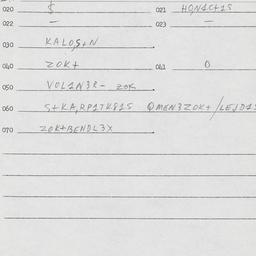 020 $ 021 HQN1C+1S
022 — 023 —
030 KALOS+N
040 ZOK+ 041 0
050 VOL1N3R- ZOK
060 S+KA,RP1TK81S QMEN3ZOK+/LEJD1S
070 ZOK+BENDL3X